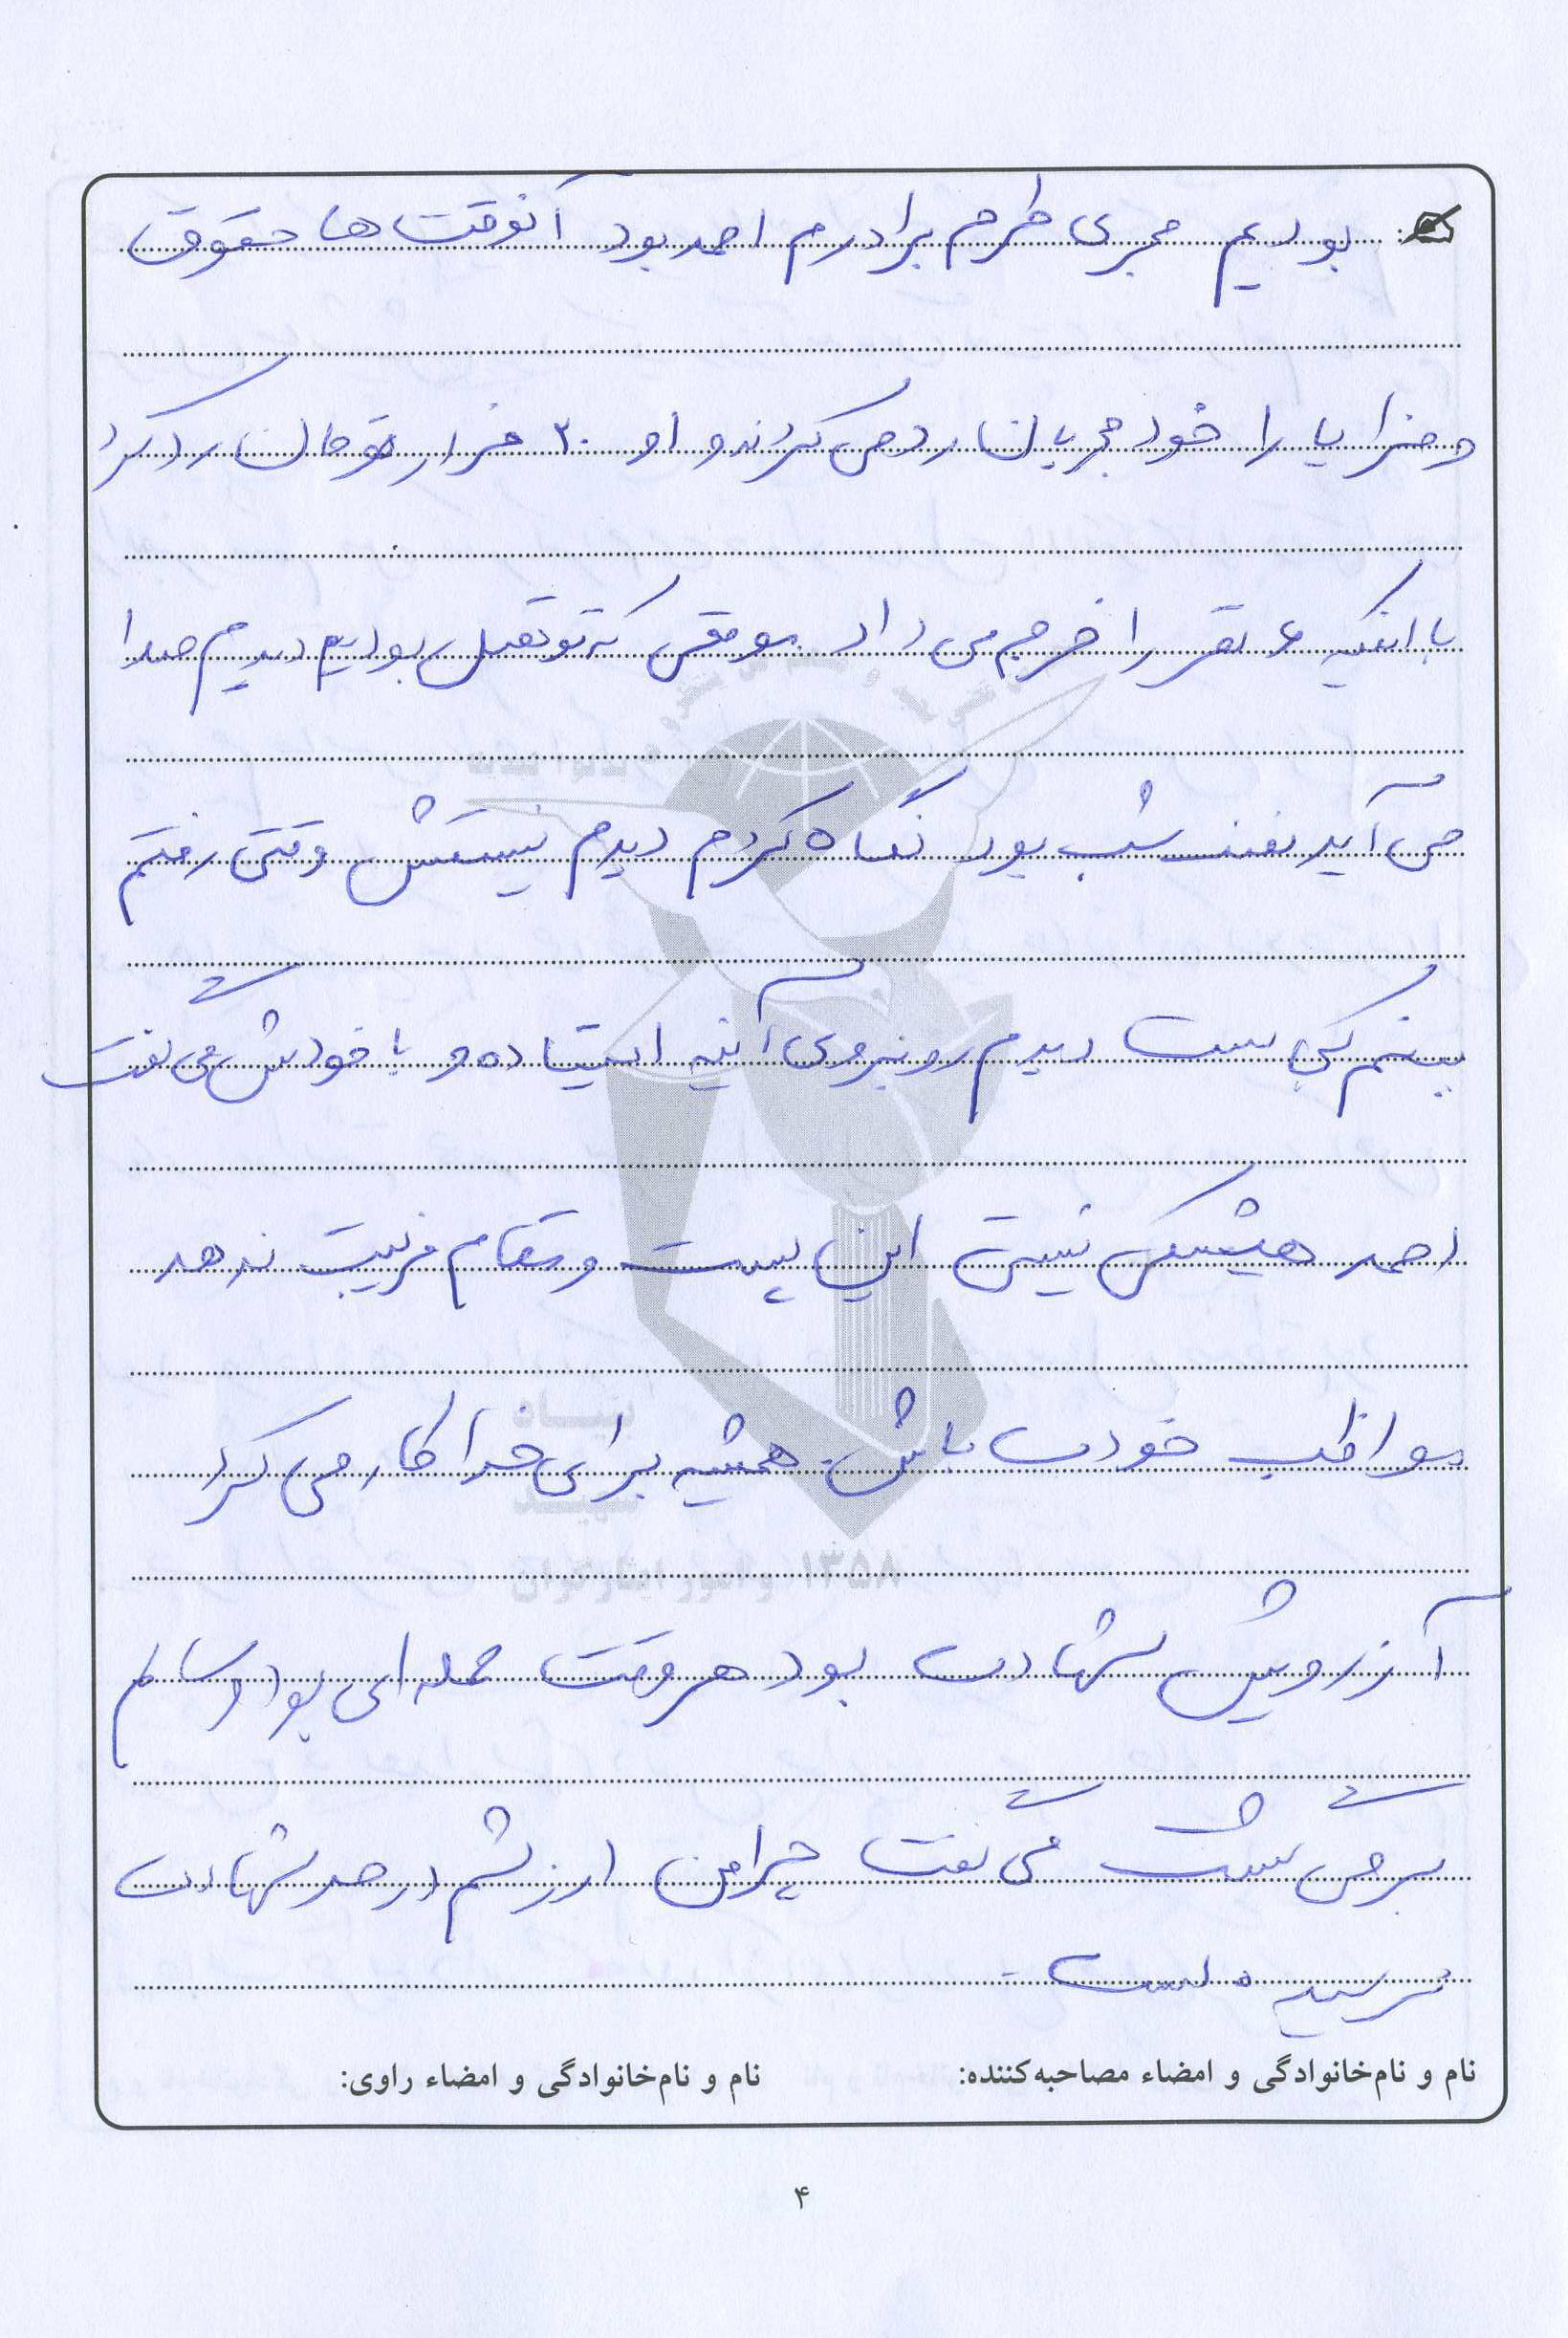 بودیم مجری طرح برادرم احمد بود آنوقت ها حقوق
و مزایا را خود مجریان رد می کردند و او ۳۰ هزار تومان رد کرد
با اینکه ۶ نفر را خرج می داد موقعی که تو تقیل بودیم دیدم صدا
می آید نصف شب بود نگاه کردم دیدم نیستش وقتی رفتم
ببینم کی ست دیدم روبروی آئینه ایستاده و با خودش می گفت
احمد هیشکی نیستی این پست و مقام فریبت ندهد
مواظب خودت باش. همیشه برای خدا کار می کرد
آرزویش شهادت بود هر وقت حمله ای بود و سالم
برمی گشت می گفت چرا من ارزشم در حد شهادت
نرسیده است.
نام و نام‌خانوادگی و امضاء مصاحبه‌کننده:
نام و نام‌خانوادگی و امضاء راوی:
۱۳۵۸
و امور ایثارگران
۴